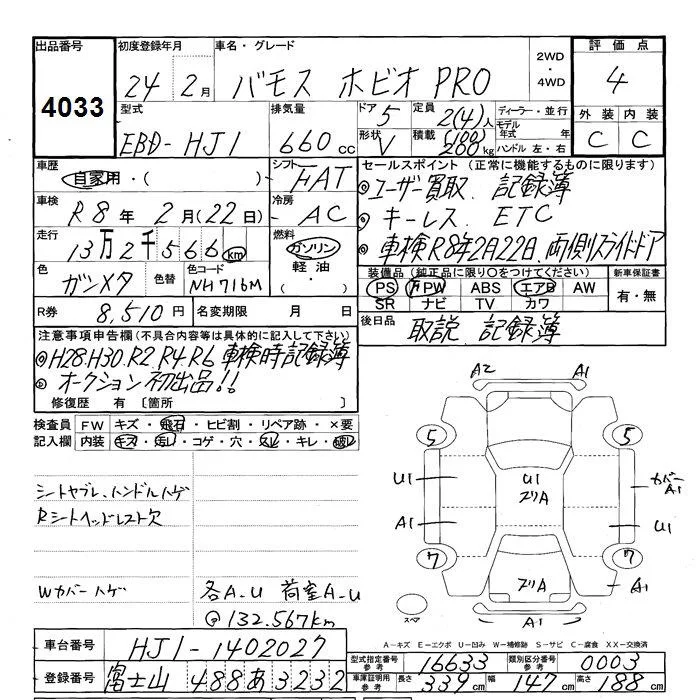 出品番号 4033
初度登録年月 24年 2月
車名・グレード バモス ホビオ PRO
2WD ・ 4WD
評価点 4
外装 C 内装 C
型式 EBD-HJ1
排気量 660cc
ドア 5 形状 V
定員 2(4)人
積載 (100) 200kg
ディーラー・並行
モデル年式 年
ハンドル 左・右
車歴 自家用・( )
シフト FAT
車検 R8年 2月(22日)
冷房 AC
走行 13万2千566km
燃料 ガソリン 軽油 ・( )
色 ガンメタ 色替
色コード NH716M
R券 8,510円
名変期限 月 日
セールスポイント(正常に機能するものに限ります)
◎ユーザー買取、記録簿
◎キーレス、ETC
◎車検R8年2月22日、両側スライドドア
装備品(純正品に限り○をつけてください)
PS PW ABS エアB AW
SR ナビ TV カワ
新車保証書 有・無
後日品 取説 記録簿
注意事項申告欄(不具合内容等は具体的に記入して下さい)
◎H28.H30.R2.R4.R6 車検時記録簿
◎オークション初出品!!
修復歴 有 〔箇所 〕
検査員記入欄
FW キズ・飛石・ヒビ割・リペア跡・×要
内装 キズ・汚レ・コゲ・穴・スレ・キレ・破レ
シートヤブレ、ハンドルハゲ
Rシートヘッドレスト欠
Wカバーハゲ
各A-U 荷室A-U
@132.567km
A2 A1
5 5
U1 U1 カバーA1
ズリA
A1 U1
7 7
ズリA
A1
A1
スペア
A-キズ E-エクボ U-凹み W-補修跡 S-サビ C-腐食 XX-交換済
車台番号 HJ1-1402027
登録番号 富士山 488 あ 3232
型式指定番号 参考 16633
類別区分番号 参考 0003
車庫証明用 参考 長さ 339cm 幅 147cm 高さ 188cm